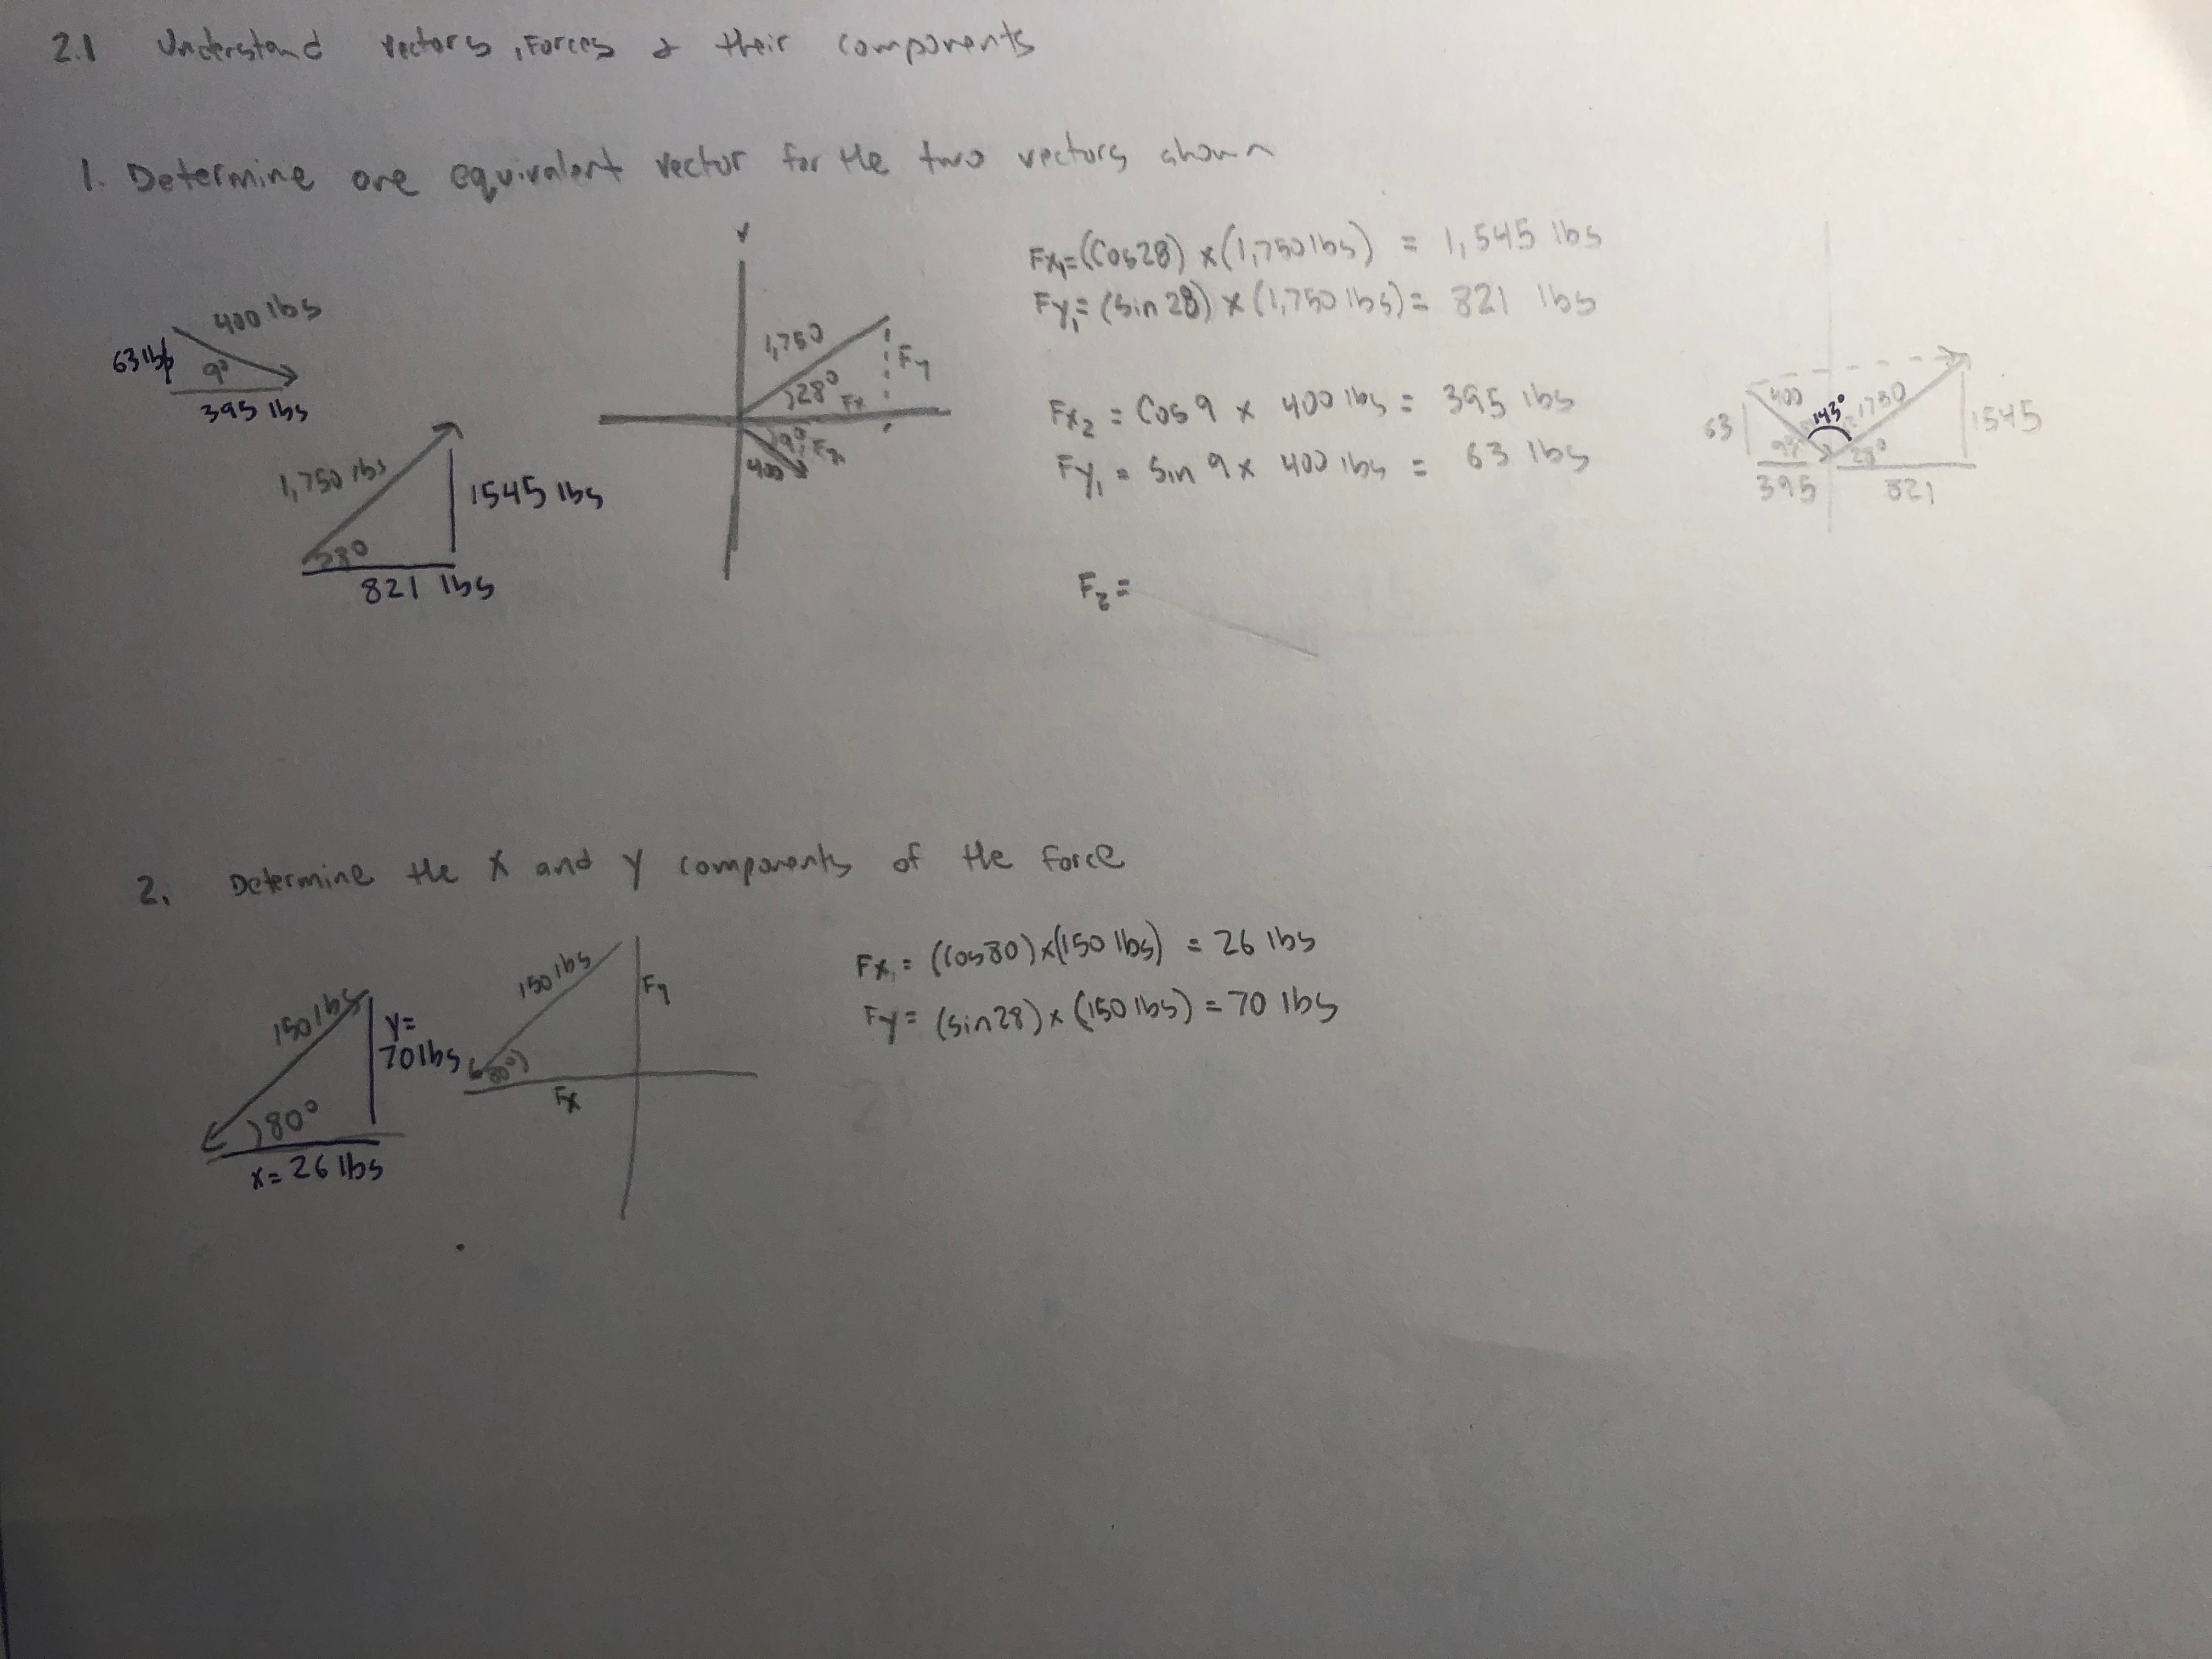 2.1 Understand vectors, Forces & their components
1. Determine one equivalent vector for the two vectors shown
400 lbs
63 lbs
9°
395 lbs
1,750 lbs
1545 lbs
28°
821 lbs
Y
1,750
28°
Fx
Fy
9°
Fx
400
Fx₁=(Cos28) x (1,750 lbs) = 1,545 lbs
Fy₁= (sin 28) x (1,750 lbs) = 821 lbs
Fx₂ = Cos 9 x 400 lbs = 395 lbs
Fy₁ = Sin 9 x 400 lbs = 63 lbs
F₂ =
400
143°
1750
63
9°
28°
1545
395
821
2. Determine the X and Y components of the force
150 lbs
Y=
70 lbs
80°
x= 26 lbs
150 lbs
Fy
80°
Fx
Fx₁= (Cos80)x(150 lbs) = 26 lbs
Fy= (sin28) x (150 lbs) = 70 lbs